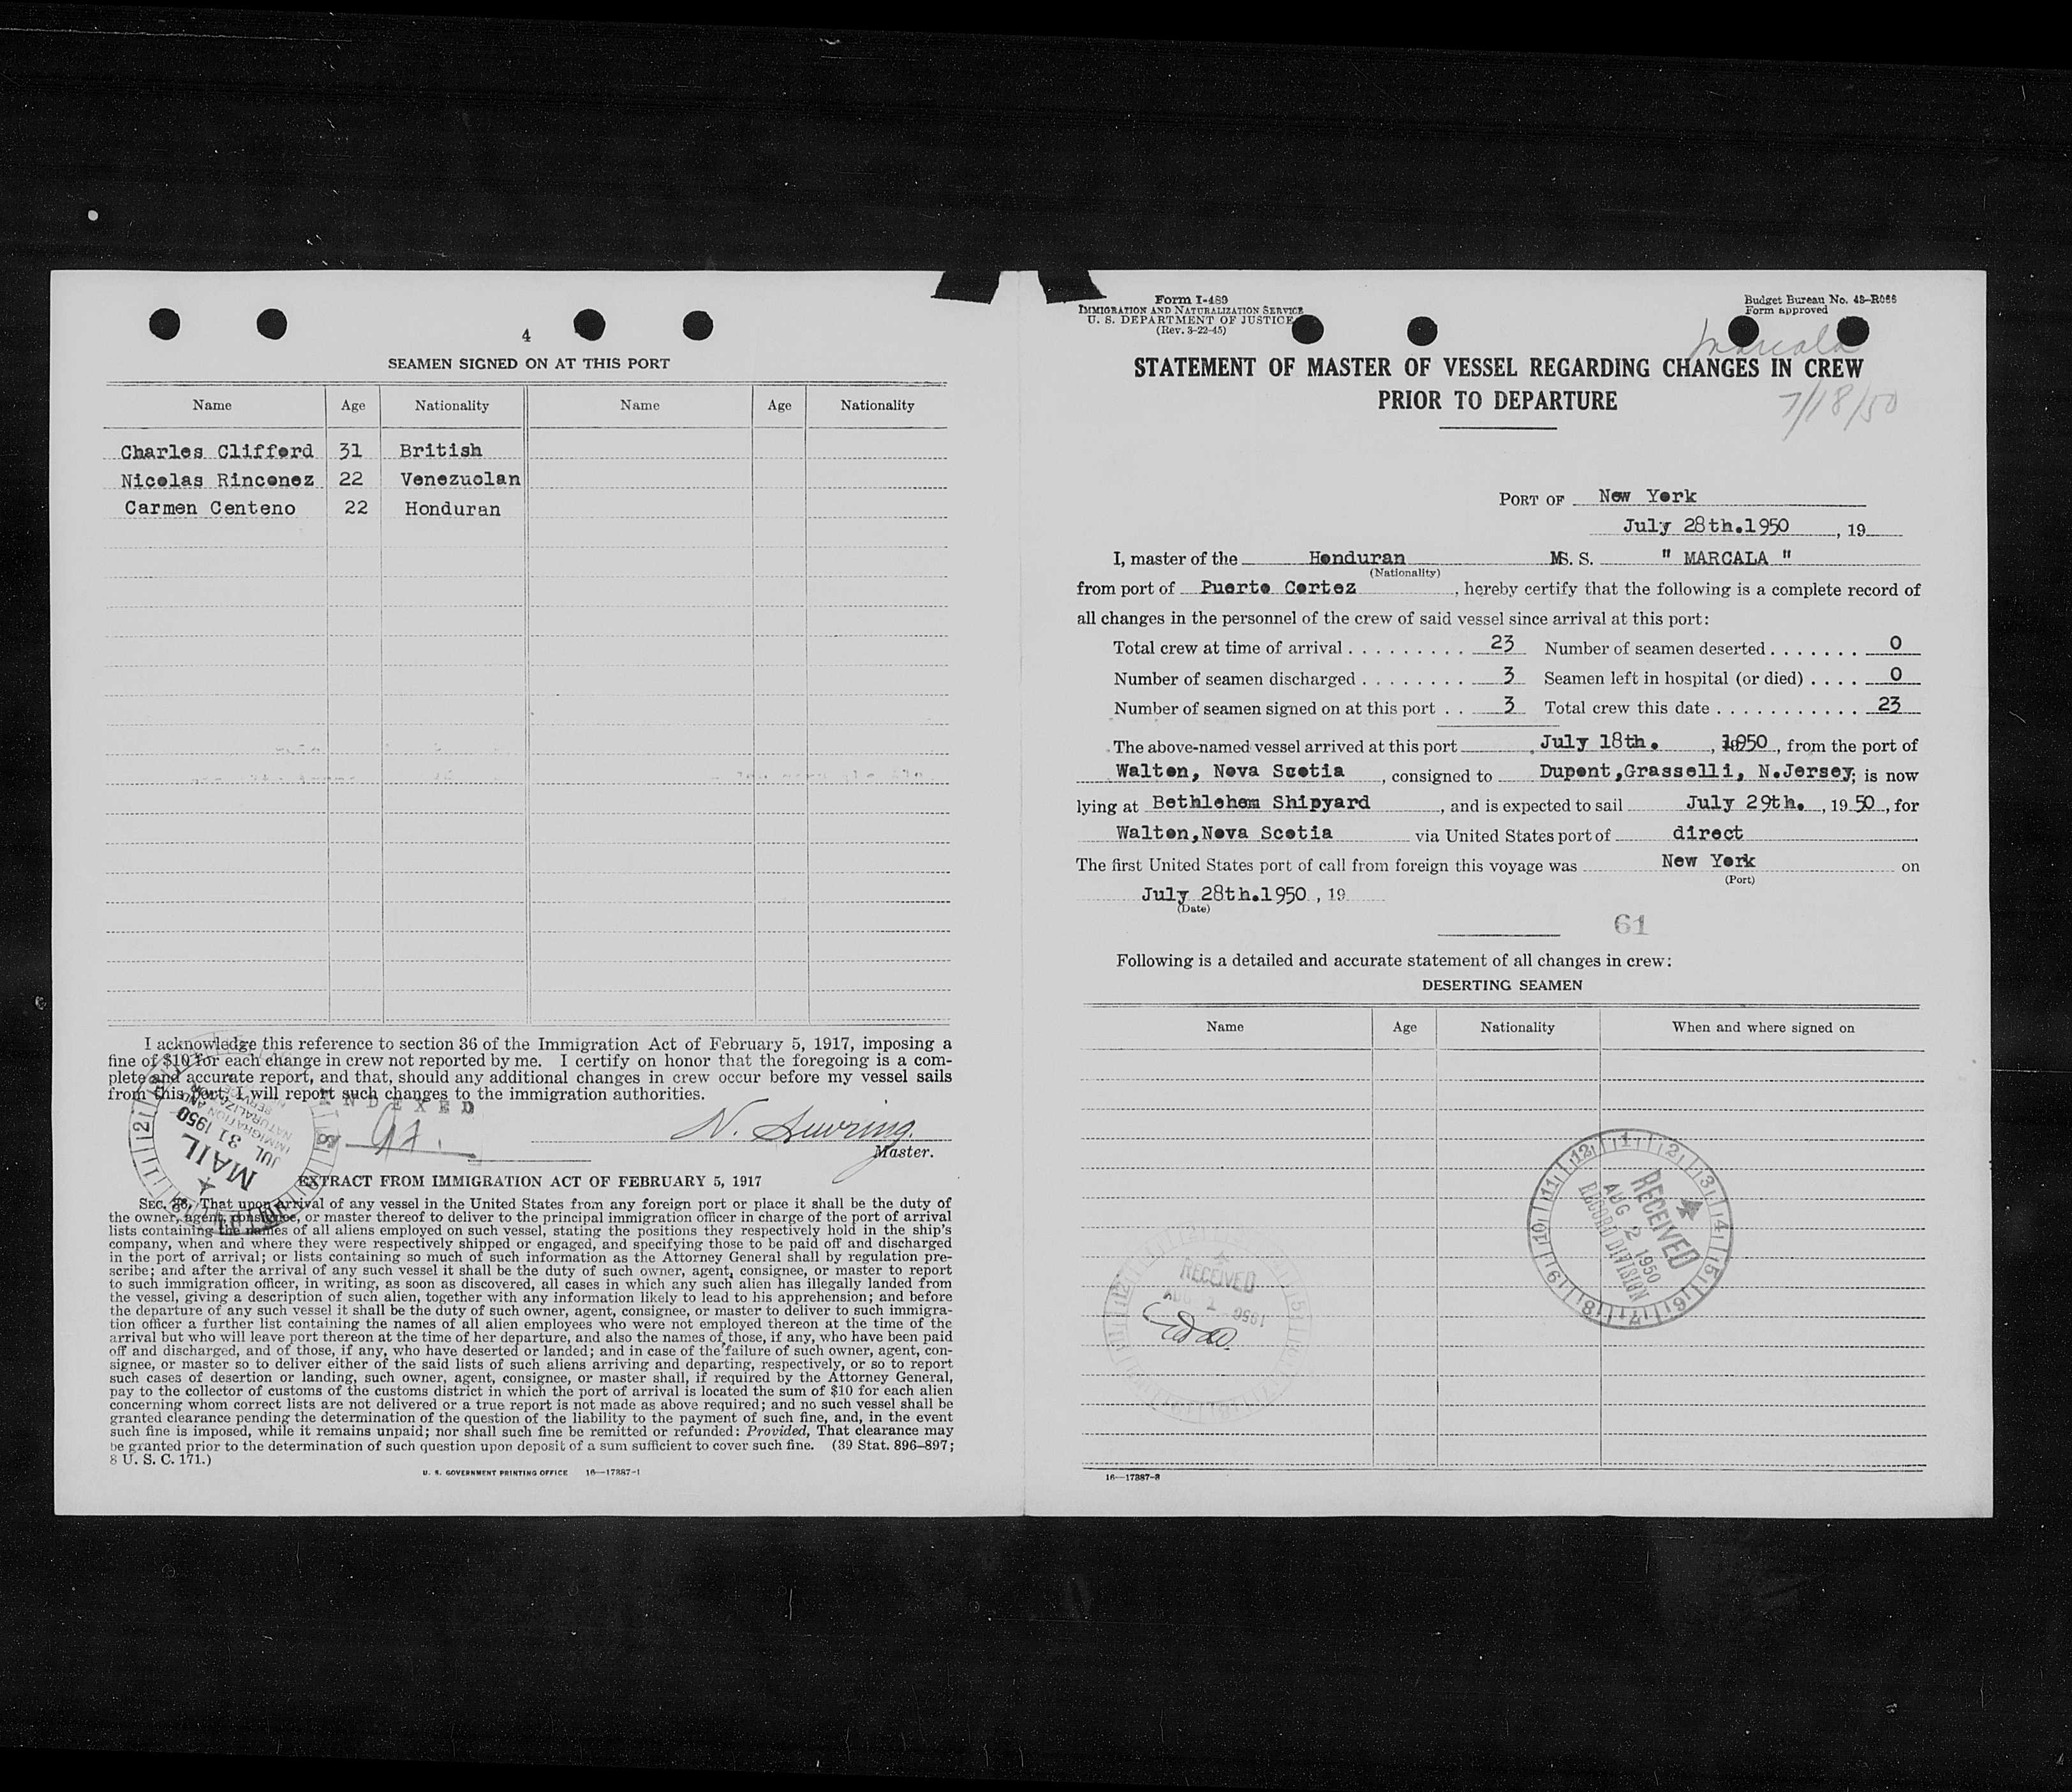 4
SEAMEN SIGNED ON AT THIS PORT
Name Age Nationality Name Age Nationality
Charles Clifford 31 British
Nicolas Rinconez 22 Venezuolan
Carmen Centeno 22 Honduran
I acknowledge this reference to section 36 of the Immigration Act of February 5, 1917, imposing a
fine of $10 for each change in crew not reported by me. I certify on honor that the foregoing is a com-
plete and accurate report, and that, should any additional changes in crew occur before my vessel sails
from this port, I will report such changes to the immigration authorities.
INDEXED
MAIL
JUL 31 1950
IMMIGRATION AND
NATURALIZATION
SERVICE
N.
Master.
EXTRACT FROM IMMIGRATION ACT OF FEBRUARY 5, 1917
SEC. 36. That upon arrival of any vessel in the United States from any foreign port or place it shall be the duty of
the owner, agent, consignee, or master thereof to deliver to the principal immigration officer in charge of the port of arrival
lists containing the names of all aliens employed on such vessel, stating the positions they respectively hold in the ship's
company, when and where they were respectively shipped or engaged, and specifying those to be paid off and discharged
in the port of arrival; or lists containing so much of such information as the Attorney General shall by regulation pre-
scribe; and after the arrival of any such vessel it shall be the duty of such owner, agent, consignee, or master to report
to such immigration officer, in writing, as soon as discovered, all cases in which any such alien has illegally landed from
the vessel, giving a description of such alien, together with any information likely to lead to his apprehension; and before
the departure of any such vessel it shall be the duty of such owner, agent, consignee, or master to deliver to such immigra-
tion officer a further list containing the names of all alien employees who were not employed thereon at the time of the
arrival but who will leave port thereon at the time of her departure, and also the names of those, if any, who have been paid
off and discharged, and of those, if any, who have deserted or landed; and in case of the failure of such owner, agent, con-
signee, or master so to deliver either of the said lists of such aliens arriving and departing, respectively, or so to report
such cases of desertion or landing, such owner, agent, consignee, or master shall, if required by the Attorney General,
pay to the collector of customs of the customs district in which the port of arrival is located the sum of $10 for each alien
concerning whom correct lists are not delivered or a true report is not made as above required; and no such vessel shall be
granted clearance pending the determination of the question of the liability to the payment of such fine, and, in the event
such fine is imposed, while it remains unpaid; nor shall such fine be remitted or refunded: Provided, That clearance may
be granted prior to the determination of such question upon deposit of a sum sufficient to cover such fine. (39 Stat. 896–897;
8 U. S. C. 171.)
U. S. GOVERNMENT PRINTING OFFICE 16—17387-1
Form I-489
IMMIGRATION AND NATURALIZATION SERVICE
U. S. DEPARTMENT OF JUSTICE
(Rev. 3-22-45)
Budget Bureau No. 43–R066
Form approved
Marcala
STATEMENT OF MASTER OF VESSEL REGARDING CHANGES IN CREW
PRIOR TO DEPARTURE
7/18/50
PORT OF New York
July 28th.1950, 19
I, master of the Honduran MS. S. " MARCALA "
(Nationality)
from port of Puerto Cortez, hereby certify that the following is a complete record of
all changes in the personnel of the crew of said vessel since arrival at this port:
Total crew at time of arrival . . . . . . . . . . 23 Number of seamen deserted . . . . . . . 0
Number of seamen discharged . . . . . . . . 3 Seamen left in hospital (or died) . . . . 0
Number of seamen signed on at this port . . 3 Total crew this date . . . . . . . . . . . . 23
The above-named vessel arrived at this port July 18th. , 1950, from the port of
Walton, Nova Scotia, consigned to Dupont,Grasselli, N.Jersey; is now
lying at Bethlehem Shipyard, and is expected to sail July 29th., 19 50, for
Walton,Nova Scotia via United States port of direct
The first United States port of call from foreign this voyage was New York on
(Port)
July 28th.1950, 19
(Date)
61
Following is a detailed and accurate statement of all changes in crew:
DESERTING SEAMEN
Name Age Nationality When and where signed on
RECEIVED
AUG 2 1950
RECORD DIVISION
RECEIVED
AUG 2 1950
16—17387-3